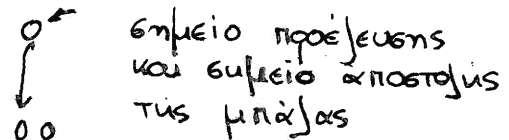 σημείο προέλευσης
και σημείο αποστολής
της μπάλας